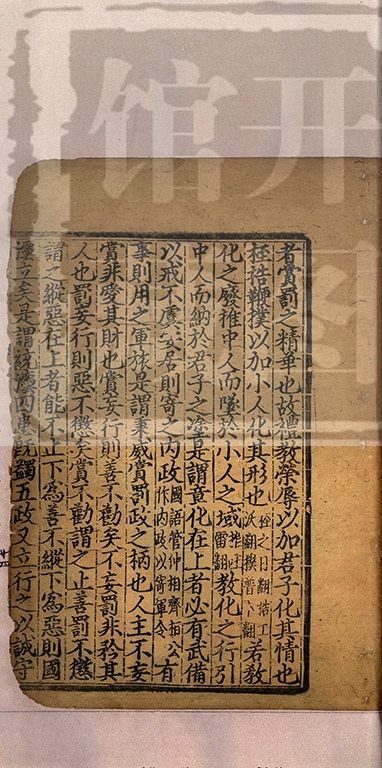 者賞罰之精華也故禮教榮辱以加君子化其情也
桎梏鞭撲以加小人化其形也桎之日翻梏工沃翻撲普卜翻若教
化之廢推中人而墜於小人之域推吐雷翻教化之行引
中人而納於君子之塗是謂章化在上者必有武備
以戒不虞安居則寄之内政國語管仲相齊桓公作内政以寄軍令有
事則用之軍旅是謂秉威賞罰政之柄也人主不妄
賞非愛其財也賞妄行則善不勸矣不妄罰非矜其
人也罰妄行則惡不懲矣賞不勸謂之止善罰不懲
謂之縱惡在上者能不止下為善不縱下為惡則國
灋立矣是謂統灋四患既蠲五政又立行之以誠守
开图
馆